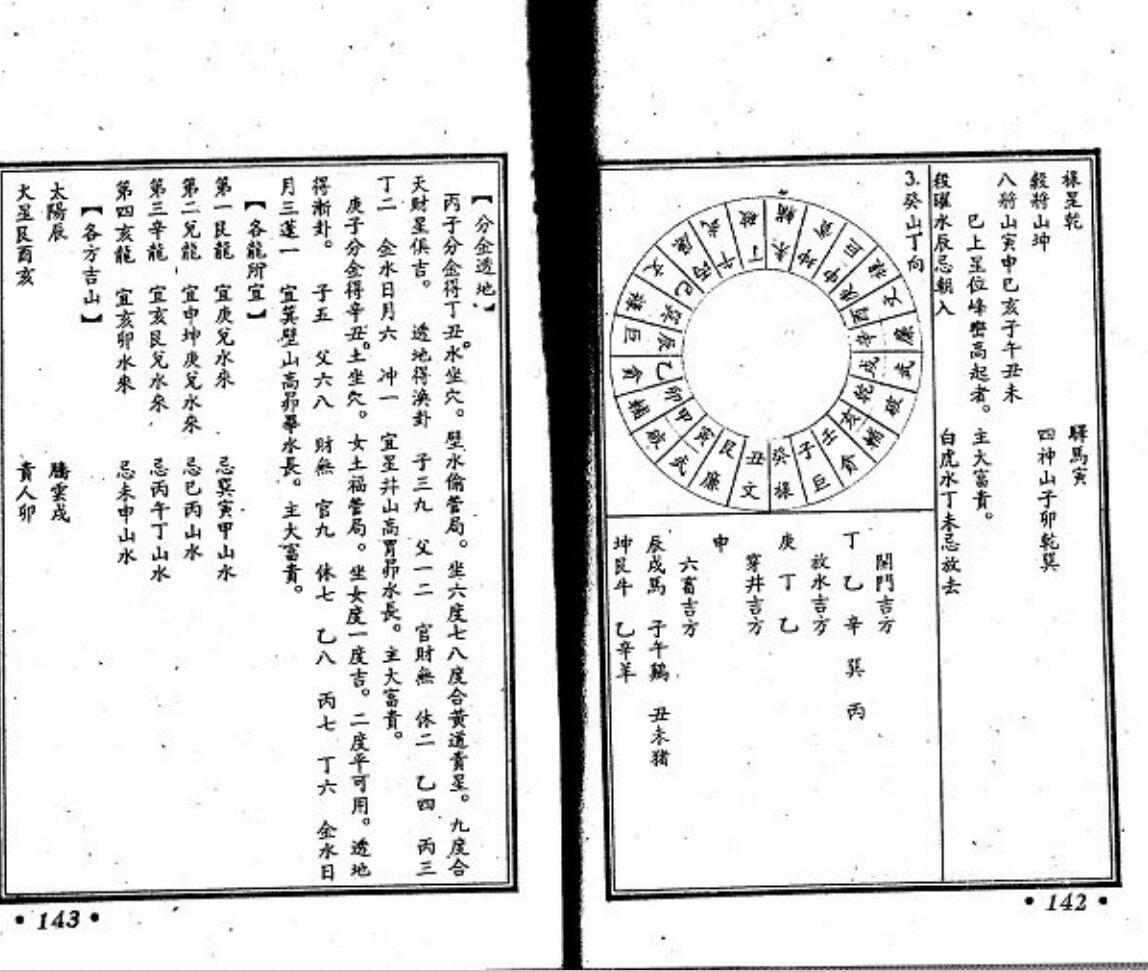 祿星乾
驛馬寅
穀將山坤
四神山子卯乾巽
八將山寅申巳亥子午丑未
巳上星位峰巒高起者。主大富貴。
殺曜水辰忌朝入
白虎水丁未忌放去
3.癸山丁向
輔 未
貪 坤
巨 申
祿 庚
文 酉
廉 辛
武 戌
破 乾
輔 亥
貪 壬
巨 子
祿 癸
文 丑
廉 艮
武 寅
破 甲
輔 卯
貪 乙
巨 辰
祿 巽
文 巳
廉 丙
武 午
破 丁
開門吉方
丁乙辛巽丙
放水吉方
庚丁乙
穿井吉方
申
六畜吉方
辰戌馬 子午鷄 丑未猪
坤艮牛 乙辛羊
•142•
【分金透地】
丙子分金得丁丑水坐穴。壁水偷管局。坐六度七八度合黃道貴星。九度合
天財星俱吉。 透地得渙卦 子三九 父一二 官財無 休二 乙四 丙三
丁二 金水日月六 冲一 宜星井山高胃昴水長。主大富貴。
庚子分金得辛丑土坐穴。女土福管局。坐女度一度吉。二度平可用。透地
得漸卦。 子五 父六八 財無 官九 休七 乙八 丙七 丁六 金水日
月三蓬一 宜箕壁山高昴畢水長。主大富貴。
【各龍所宜】
第一艮龍 宜庚兌水來 忌巽寅甲山水
第二兌龍 宜申坤庚兌水來 忌巳丙山水
第三辛龍 宜亥艮兌水來 忌丙午丁山水
第四亥龍 宜亥卯水來 忌未申山水
【各方吉山】
太陽辰 騰雲戌
大星艮酉亥 貴人卯
•143•